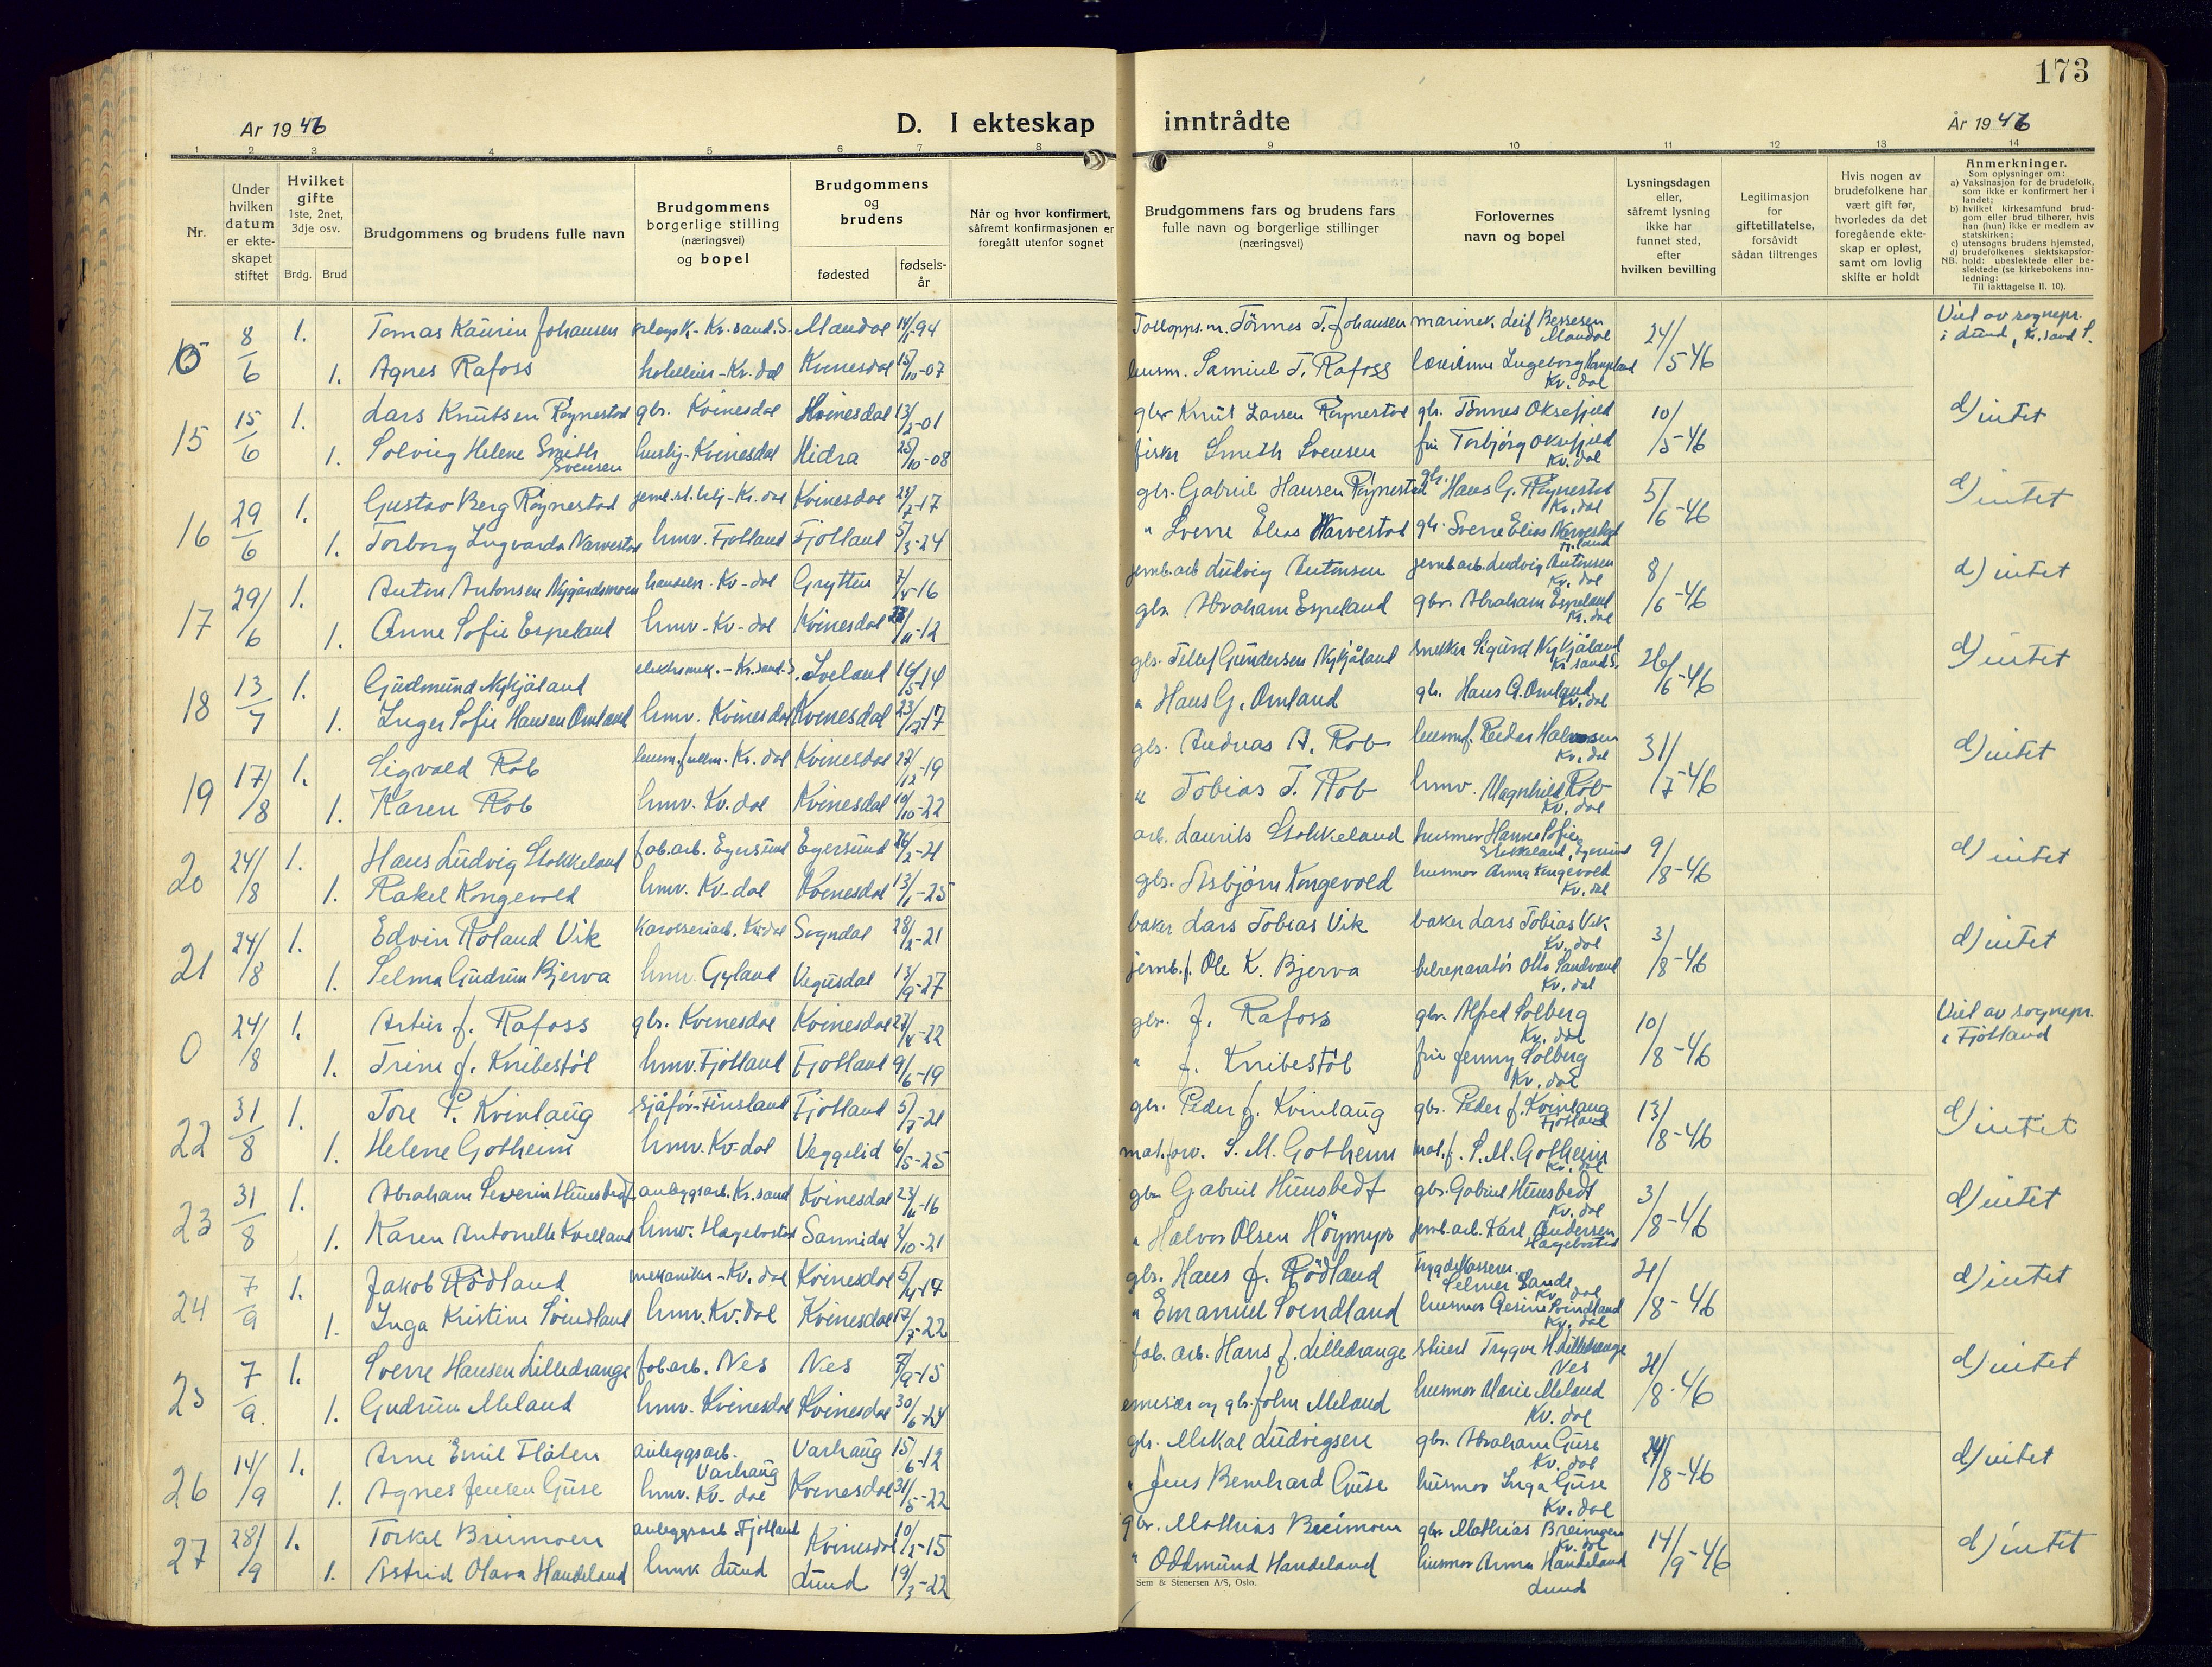 173
År 1946
D. I ekteskap inntrådte
År 1946
1 2 3 4 5 6 7 8 9 10 11 12 13 14
Nr.
Under
hvilken
datum
er ekte-
skapet
stiftet
Hvilket
gifte
1ste, 2net,
3dje osv.
Brdg. Brud
Brudgommens og brudens fulle navn
Brudgommens
borgerlige stilling
(næringsvei)
og bopel
Brudgommens
og
brudens
fødested
fødsels-
år
Når og hvor konfirmert,
såfremt konfirmasjonen er
foregått utenfor sognet
Brudgommens fars og brudens fars
fulle navn og borgerlige stillinger
(næringsvei)
Forlovernes
navn og bopel
Lysningsdagen
eller,
såfremt lysning
ikke har
funnet sted,
efter
hvilken bevilling
Legitimasjon
for
giftetillatelse,
forsåvidt
sådan tiltrenges
Hvis nogen av
brudefolkene har
vært gift før,
hvorledes da det
foregående ekte-
skap er opløst,
samt om lovlig
skifte er holdt
Anmerkninger.
Som oplysninger om:
a) Vaksinasjon for de brudefolk,
som ikke er konfirmert her i
landet;
b) hvilket kirkesamfund brud-
gom eller brud tilhører, hvis
han (hun) ikke er medlem av
statskirken;
c) utensogns brudens hjemsted,
d) brudefolkenes slektskapsfor-
NB. hold: ubeslektede eller be-
slektede (se kirkebokens inn-
ledning:
Til iakttagelse II. 10).
0 8/6 1. Tomas Kaurin Johansen Kr.sand.S. Mandal 14/1-94 Tollopps.m. Tönnes T. Johansen marinek. Leif Bessesen Mandal 24/5-46 Viel av sognepr. i Lund, Kr.sand S.
1. Agnes Rafoss hotelleier - Kv.dal Kvinesdal 15/10-07 Samuel T. Rafoss lærerinne Ingeborg Haugland Kv.dal
15 15/6 1. Lars Knutsen Röynestad gbr. Kvinesdal Kvinesdal 13/2-01 gbr. Knut Larsen Röynestad gbr. Tönnes Oksefjeld 10/5-46 d) intet
1. Solveig Helene Smith Svensen huslig - Kvinesdal Hidra 25/10-08 fisker Smith Svensen fru Torbjörg Oksefjeld Kv.dal
16 29/6 1. Gustav Berg Röynestad Kv.dal Kvinesdal 28/2-17 gbr. Gabriel Hansen Röynestad gbr. Hans G. Röynestad Kv.dal 5/6-46 d) intet
1. Torborg Ingvarda Narvestad hmv. Fjotland Fjotland 5/3-24 " Sverre Elias Narvestad gbr. Sverre Elias Narvestad Fj.land
17 29/6 1. Anton Antonsen Nygårdsmoen Kv-dal Grytten 7/4-16 jernb.arb Ludvig Antonsen jernb.arb. Ludvig Antonsen Kv.dal 8/6-46 d) intet
1. Anne Sofie Espeland hmv - Kv-dal Kvinesdal 28/11-12 gbr. Abraham Espeland gbr. Abraham Espeland Kv.dal
18 13/7 1. Gudmund Nykjåland elektromek. - Kr.sand.S. Iveland 16/5-14 gbr. Tellef Gundersen Nykjåland snekker Sigurd Nykjåland Kr.sand S. 26/6-46 d) intet
1. Inger Sofie Hansen Omland hmv. Kvinesdal Kvinesdal 23/12-17 " Hans G. Omland gbr. Hans G. Omland Kv.dal
19 17/8 1. Sigvald Rob lensm.fullm. Kv.dal Kvinesdal 27/12-19 gbr. Andreas A. Rob lensm.f. Peder Halvorsen Kv.dal 31/7-46 d) intet
1. Karen Rob hmv. Kv.dal Kvinesdal 19/10-22 " Tobias T. Rob hmv. Magnhild Rob Kv.dal
20 24/8 1. Hans Ludvig Stokkeland fab.arb. Egersund Egersund 26/2-21 arb. Laurits Stokkeland husmor Hanna Sofie Stokkeland, Egersund 9/8-46 d) intet
1. Rakel Kongevold hmv. Kv-dal Kvinesdal 13/1-25 gbr. Asbjörn Kongevold husmor Anna Kongevold Kv.dal
21 24/8 1. Edvin Roland Vik karosseriarb. Kv.dal Sogndal 28/2-21 baker Lars Tobias Vik baker Lars Tobias Vik Kv.dal 3/8-46 d) intet
1. Selma Gudrun Bjerva hmv. Gyland Vegusdal 13/9-27 jernb.f. Ole K. Bjerva bilreparatör Otto Sandvand Kv.dal
0 24/8 1. Artur J. Rafoss gbr. Kvinesdal Kvinesdal 27/4-22 gbr. J. Rafoss gbr. Alfred Solberg Kv.dal 10/8-46 Viel av sognepr. i Fjotland
1. Trine J. Knibestöl hmv. Fjotland Fjotland 9/6-19 " J. Knibestöl fru Jenny Solberg Kv.dal
22 31/8 1. Tore P. Kvinlaug sjåför - Finsland Fjotland 5/7-21 gbr. Peder J. Kvinlaug gbr. Peder J. Kvinlaug Fjotland 13/8-46 d) intet
1. Helene Gotheim hmv. Kv-dal Veggelid 6/5-25 mat.forv. S. M. Gotheim mat.f. S. M. Gotheim Kv.dal
23 31/8 1. Abraham Severin Hunsbedt anleggsarb. Kr.sand Kvinesdal 23/11-16 gbr. Gabriel Hunsbedt gbr. Gabriel Hunsbedt Kv.dal 3/8-46 d) intet
1. Karen Antonette Kvelland hmv. Hægebostad Sannidal 2/10-21 " Halvor Olsen Höymyr jernb.arb. Karl Andersen Hægebostad
24 7/9 1. Jakob Rödland mekaniker - Kv.dal Kvinesdal 5/4-17 gbr. Hans J. Rödland Trygdekasserer Selmer Sande Kv.dal 21/8-46 d) intet
1. Inga Kristine Svindland hmv. Kv.dal Kvinesdal 17/7-22 " Emanuel Svindland husmor Gesine Svindland Kv.dal
25 7/9 1. Sverre Hansen Lilledrange fab.arb. Nes Nes 7/9-15 fab. arb. Hans J. Lilledrange stuert Trygve H. Lilledrange Nes 21/8-46 d) intet
1. Gudrun Meland hmv. Kvinesdal Kvinesdal 30/6-24 emisær og gbr. John Meland husmor Marie Meland Kv.dal
26 14/9 1. Arne Emil Flåten anleggsarb. Varhaug Varhaug 15/6-12 gbr. Mikal Ludvigsen gbr. Abraham Guse Kv.dal 24/8-46 d) intet
1. Agnes Jensen Guse hmv. Kv-dal Kvinesdal 31/5-22 " Jens Bernhard Guse husmor Inga Guse Kv.dal
27 28/9 1. Torkel Breimoen anleggsarb Fjotland Kvinesdal 10/2-15 gbr. Mathias Breimoen gbr. Mathias Breimoen Kv.dal 14/9-46 d) intet
1. Astrid Olava Handeland hmv Lund Lund 19/3-22 " Oddmund Handeland husmor Anna Handeland Lund
Sem & Stenersen A/S, Oslo.